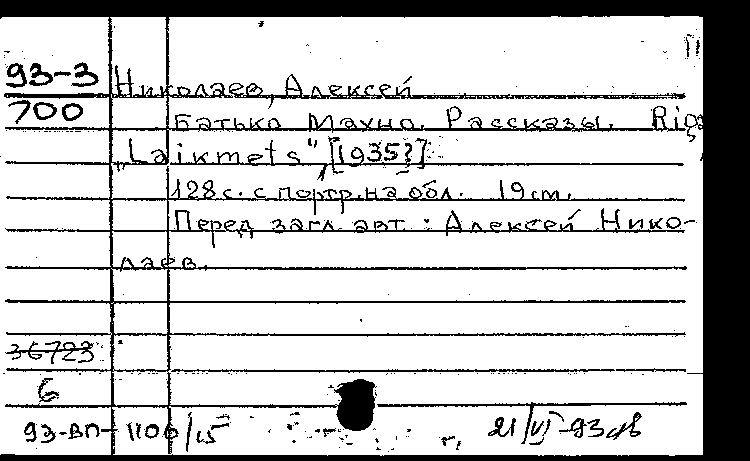 93-3
700
Николаев, Алексей
Батько Махно. Рассказы. Riga
„Laikmets“, [1935?]
128 с. с портр. на обл. 19 см.
Перед загл. авт.: Алексей Нико-
лаев.
36723
6
93-ВП-1106/15
21/VI-93